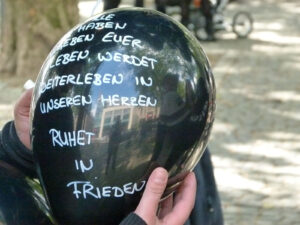 ALLE
HABEN
EUER
LEBEN, WERDET
WEITERLEBEN IN
UNSEREN HERZEN
RUHET
IN
FRIEDEN